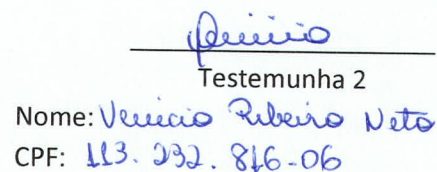 Venicio
Testemunha 2
Nome: Venicio Ribeiro Neto
CPF: 113.232.816-06